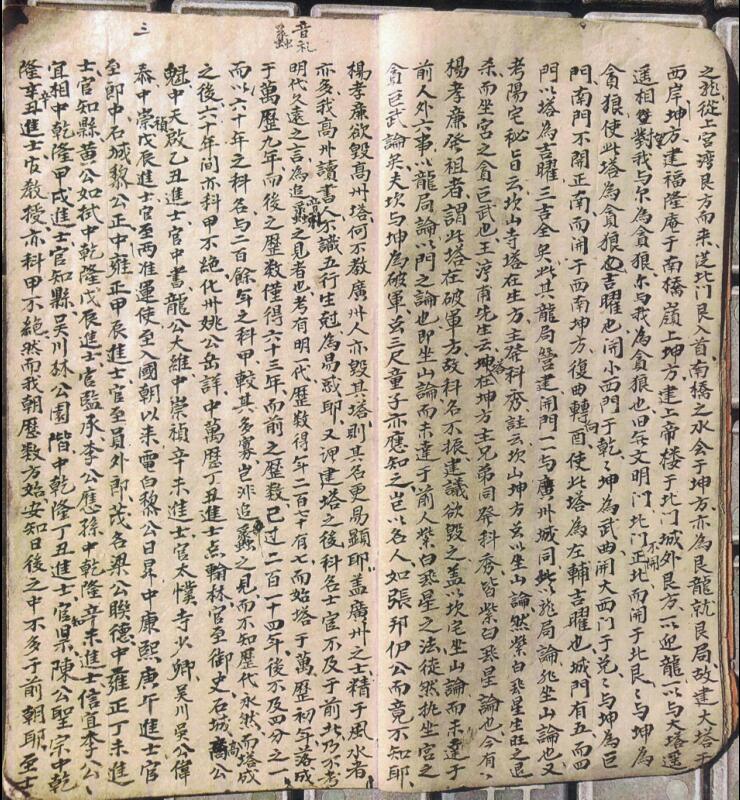 之龍從上宮灣艮方而来送北門艮入首南橋之水会于坤方亦為艮龍就艮局故建大塔于
西岸坤方建福隆庵于南橋嶺上坤方建上帝楼于北門城外艮方以迎龍以与大塔遥
遥相對我与尔為貪狼尔与我為貪狼也旧无文明門北門不開正北而開于北艮艮与坤為
貪狼使此塔為貪狼吉曜也開小西門于乾乾坤為武曲開大西門于兌兌与坤為巨
門南門不開正南而開于西南坤方復曲轉向酉使此塔為左輔吉曜也城門有五而四
門以塔為吉曜三吉全矣此其龍局營建開門一一与廣州城同此以龍局論非坐山論也又
考陽宅秘旨云坎山寺塔在生方主發科秀註云坎山坤方其以坐山論然紫白飛星生旺之退
杀而坐宮之貪巨武也王湾甫先生云塔在坤方主兄弟同發科秀皆紫白飛星論也今有
楊孝廉發祖者謂此塔在破軍方故科名不振建議欲毁之盖以坎宅坐山論而未達于
前人外六事以龍局論以門之論也即坐山論而未達于前人紫白飛星之法徒然挑坐宮之
貪巨武論矣夫坎与坤為破軍茲三尺童子亦應知之豈以名人如張邦伊公而竟不知耶
音礼蠡
三
楊孝廉欲毁髙州塔何不教廣州人亦毁其塔則其名更易顯耶盖廣州之士精于風水者
亦多我髙州讀書人不識五行生尅為易惑耶又謂建塔之後科名士宦不及于前此乃不考
明代久遠之言為追蠡音礼之見者也考有明一代歷数得年二百七十有七而始塔于萬歷初年落成
于萬歷九年而後之歷数僅得六十三年而前之歷数已过二百一十四年後不及四分之一
而以六十年之科名与二百餘年之科甲較其多寡豈非追蠡之見而不知歷代永然而塔成
之後六十年間亦科甲不絶化州姚公岳詳中萬歷丁丑進士点翰林官至御史石城髙公
魁中天啟乙丑進士官中書龍公大維中崇禎辛未進士官太僕寺少卿吳川吳公偉
泰中崇禎戊辰進士官至两准運使至入國朝以来電白黎公日昇中康熙庚午進士官
至郎中石城黎公正中雍正甲辰進士官至員外郎茂名梁公聯德中雍正丁未進
士官知縣黄公如栻中乾隆戊辰進士官監承李公應孫中乾隆辛未進士信宜李公
宜相中乾隆甲戌進士官知縣吳川林公園階中乾隆丁丑進士官知県陳公聖宗中乾
隆辛丑進士官教授亦科甲不絶然而我朝歷数方始安知日後之中不多于前朝耶至士